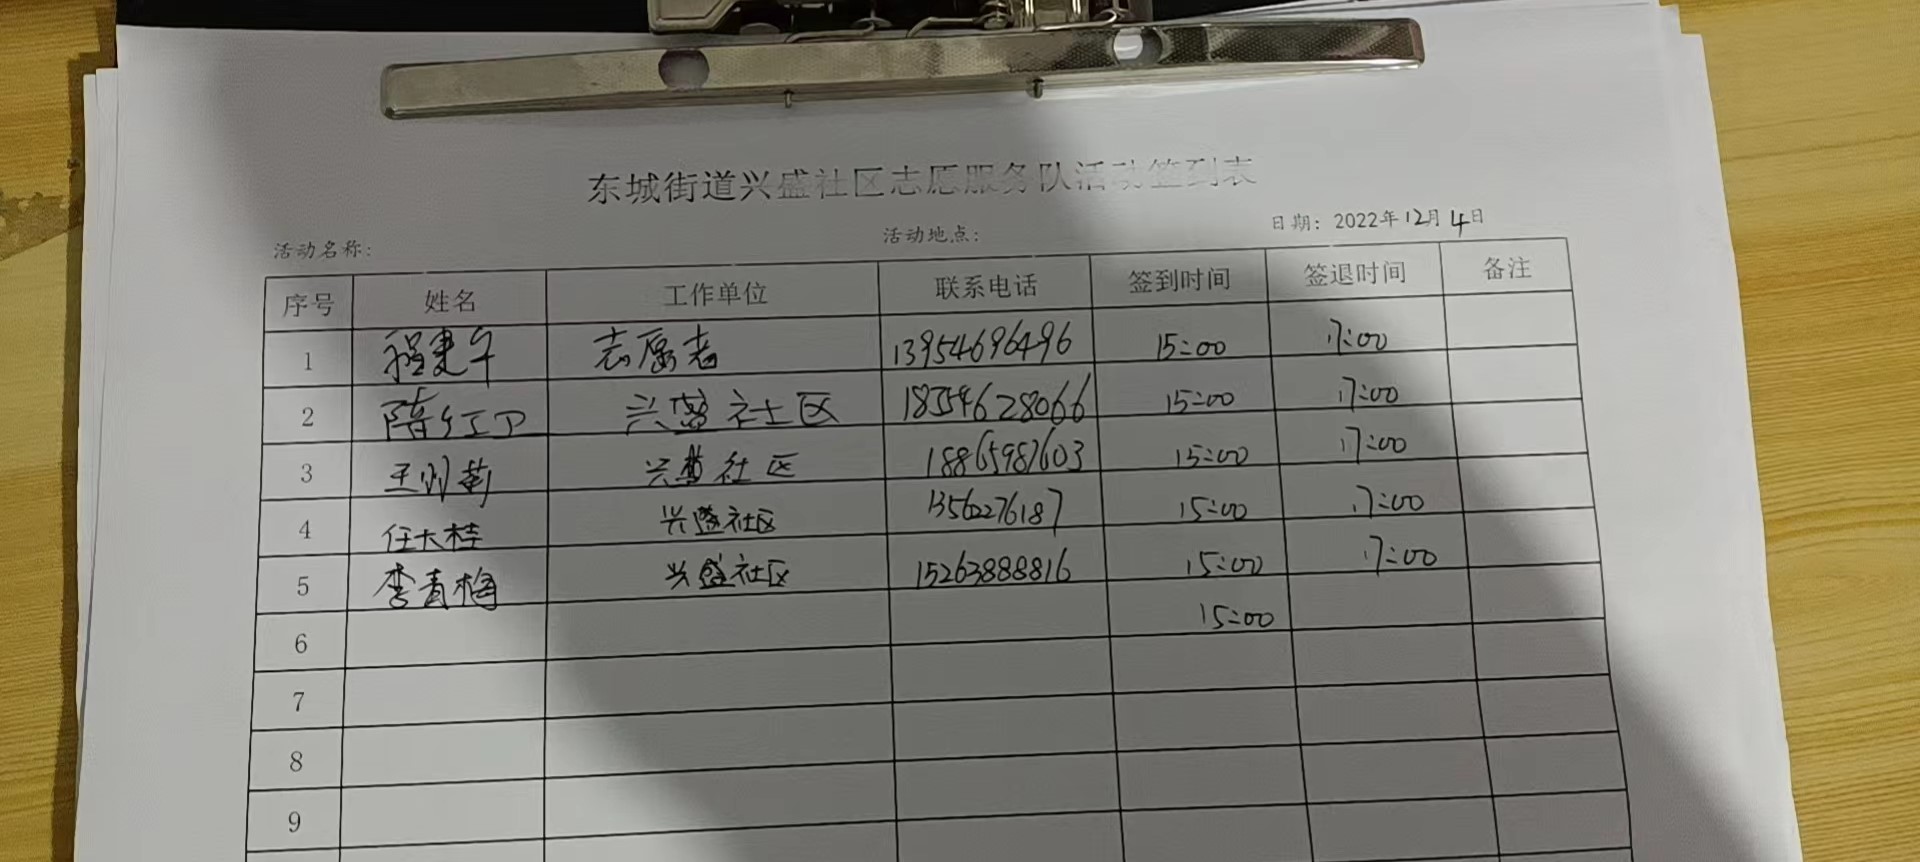 东城街道兴盛社区志愿服务队活动签到表
活动名称: 活动地点: 日期: 2022年12月4日
序号 姓名 工作单位 联系电话 签到时间 签退时间 备注
1 程建午 志愿者 13954696496 15:00 17:00
2 隋红卫 兴盛社区 18354628066 15:00 17:00
3 兴盛社区 18865987603 15:00 17:00
4 任大桂 兴盛社区 13562276187 15:00 17:00
5 李青梅 兴盛社区 15263888816 15:00 17:00
6 15:00
7
8
9